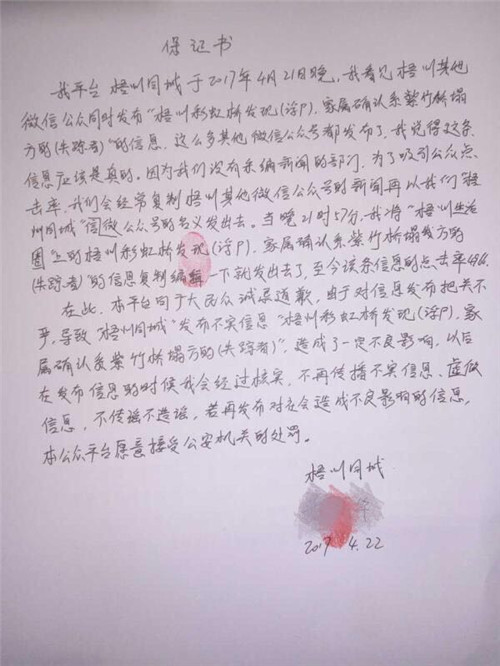 保记书
我平台 梧州同城 于2017年4月21日晚，我看见 梧州其他
微信公众同时发布“梧州彩虹桥发现（浮尸），家属确认系紫竹桥塌
方的（失踪者）”的信息，这么多其他微信公众号都发布了，我觉得这条
信息应该是真的。因为我们没有采编新闻的部门，为了吸引公众点
击率，我们会经常复制梧州其他微信公众号的新闻再以我们“梧
州同城”微公众号的名义发出去。当晚21时57分，我将“梧州生活
圈”上的梧州彩虹桥发现（浮尸），家属确认系紫竹桥塌方方的
（失踪者）”的信息复制编辑一下就发出去了，至今该条信息的点击率486。
在此，本平台向广大民众诚恳道歉，由于对信息发布把关不
严，导致“梧州同城”发布不实信息“梧州彩虹桥发现（浮尸），家
属确认系紫竹桥塌方的（失踪者）”，造成了一定不良影响，以后
在发布信息的时候我会经过核实，不再传播不实信息、虚假
信息，不传谣不造谣，若再发布对社会造成不良影响的信息，
本公众平台愿意接受公安机关的处罚。
梧州同城
2017.4.22